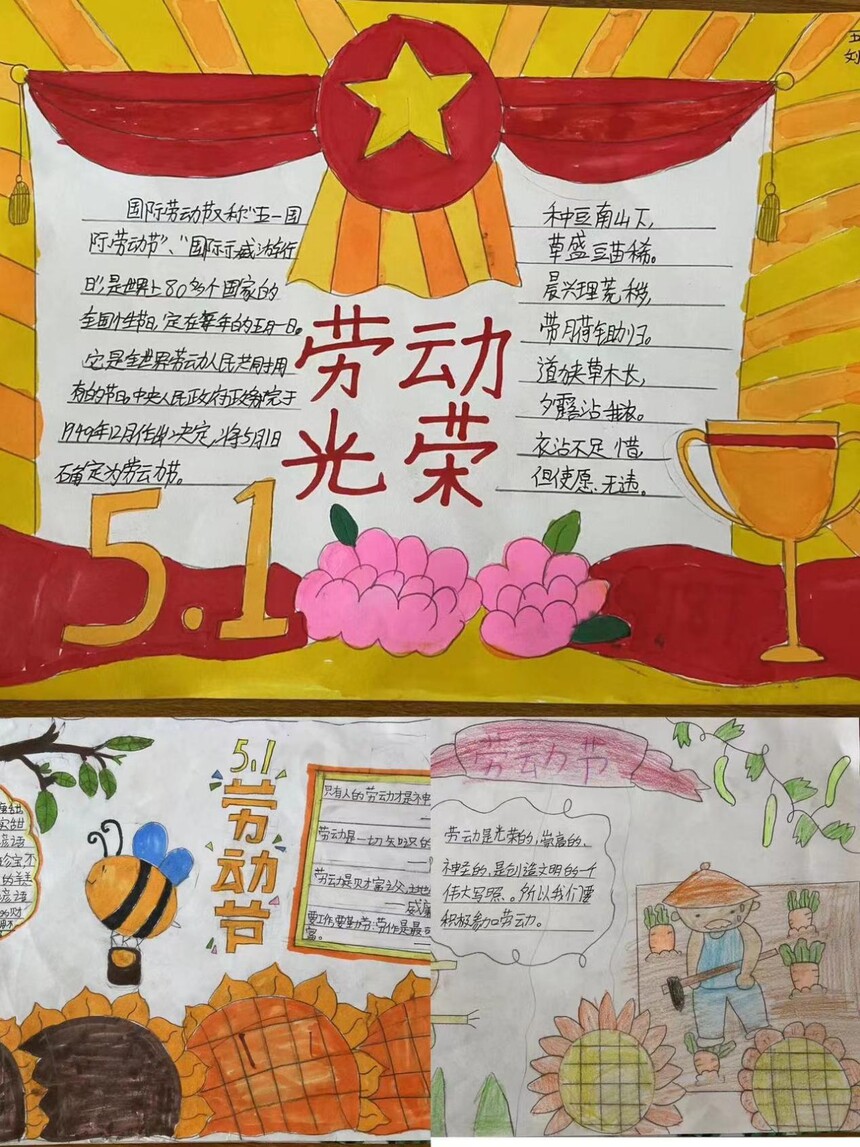 五
刘
国际劳动节又称“五一国
际劳动节”、“国际示威游行
日”,是世界上80多个国家的
全国性节日,定在每年的五月一日。
它是全世界劳动人民共同拥
有的节日。中央人民政府政务院于
1949年12月作出决定,将5月1日
确定为劳动节。
劳动
光荣
种豆南山下,
草盛豆苗稀。
晨兴理荒秽,
带月荷锄归。
道狭草木长,
夕露沾我衣。
衣沾不足惜,
但使愿无违。
5.1
5.1
劳动节
只有人的劳动才是神
劳动是一切知识的
劳动是财富之父,土地
威廉
要工作,要勤劳:劳作是最可
富。
劳动节
劳动是光荣的,崇高的,
神圣的,是创造文明的一个
伟大写照。所以我们要
积极参加劳动。